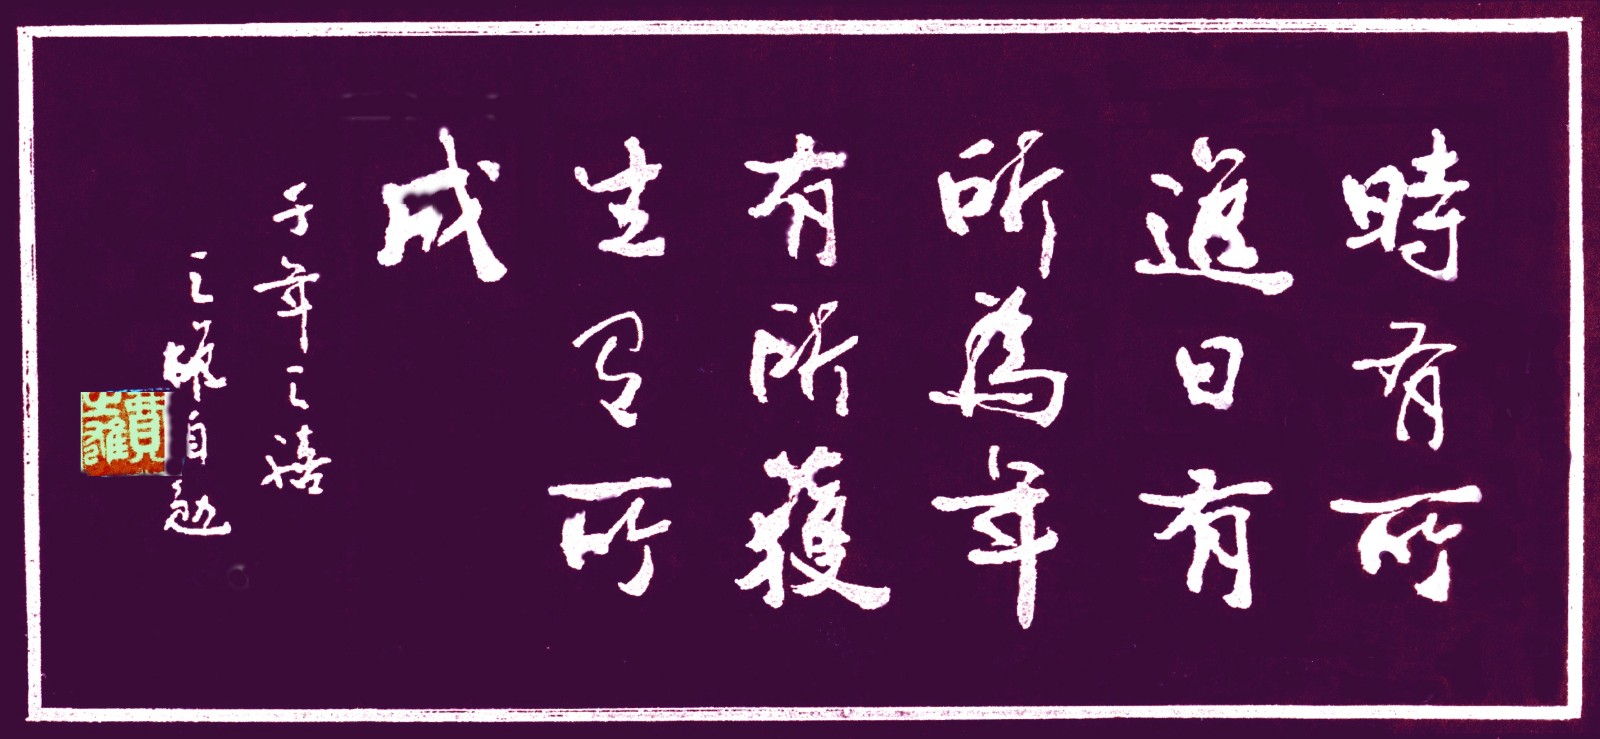 時有所
進日有
所為年
有所獲
生有所
成
子年之禧
之雄自勉